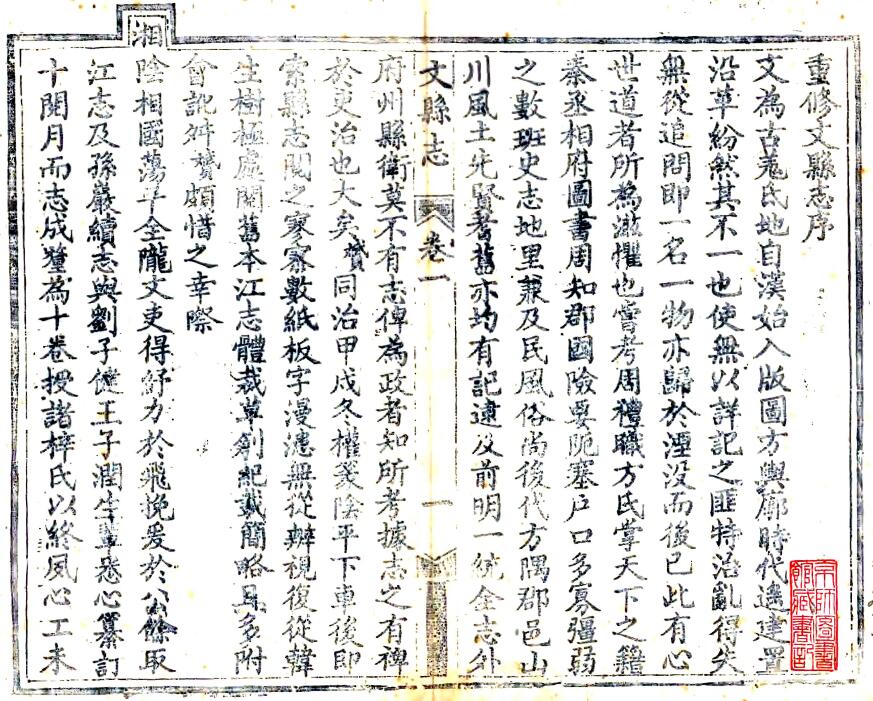 重修文縣志序
文為古氐羌地自漢始入版圖方輿廓時代遙建置
沿革紛然其不一也使無以詳記之匪特治亂得失
無從追問即一名一物亦歸於湮没而後已此有心
世道者所為滋懼也嘗考周禮職方氏掌天下之籍
秦丞相府圖書周知郡國險要阨塞戶口多寡彊弱
之數班史志地里兼及民風俗尚後代方隅郡邑山
川風土先賢耆舊亦均有記逮及前明一統全志外
文縣志 卷一 一
府州縣衛莫不有志俾為政者知所考據志之有裨
於吏治也大矣贊同治甲戌冬權篆陰平下車後即
索縣志閱之寥寥數紙板字漫漶無從辦視復從韓
生樹極處閱舊本江志體裁草創紀載簡略且多附
會訛舛贊頗惜之幸際
湘陰相國蕩平全隴文吏得紓力於飛挽爰於公餘取
江志及孫巖續志與劉子健王子潤生輩悉心纂訂
十閱月而志成釐為十卷授諸梓氏以終夙心工未
京師圖書館藏書記